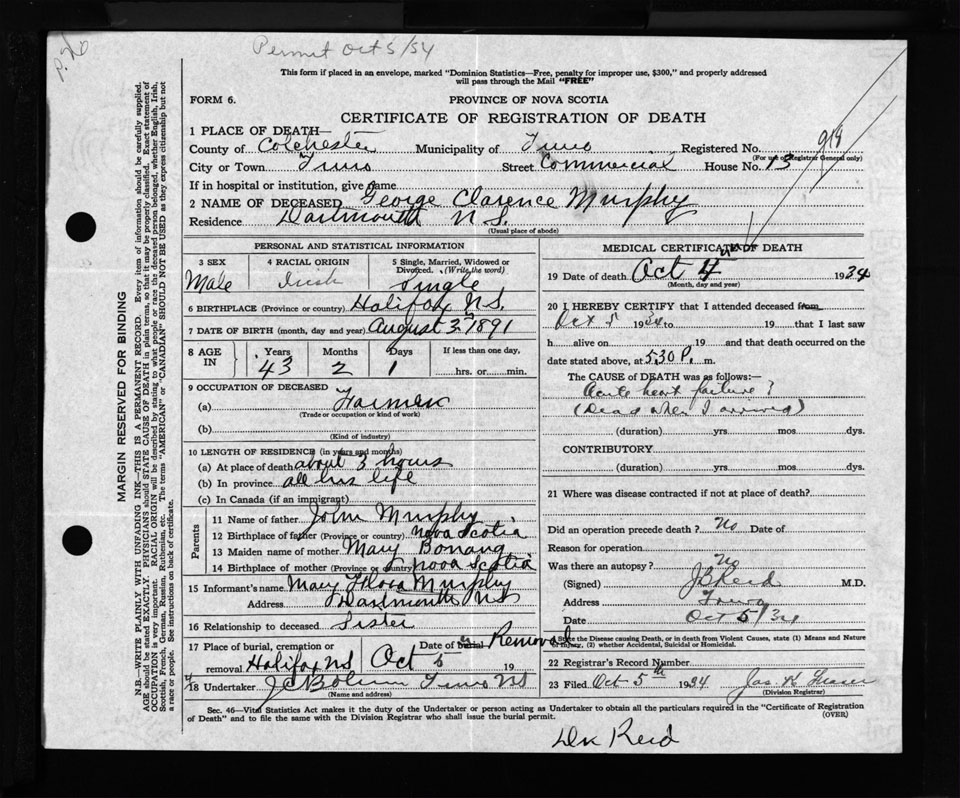 Permit Oct 5/34
P. 26
This form if placed in an envelope, marked "Dominion Statistics—Free, penalty for improper use, $300," and properly addressed
will pass through the Mail "FREE"
FORM 6.
PROVINCE OF NOVA SCOTIA
CERTIFICATE OF REGISTRATION OF DEATH
1 PLACE OF DEATH—
County of Colchester Municipality of Truro Registered No.
(For use of Registrar General only)
919
City or Town Truro Street Commercial House No. 13
If in hospital or institution, give name
2 NAME OF DECEASED George Clarence Murphy
Residence Dartmouth N S.
(Usual place of abode)
PERSONAL AND STATISTICAL INFORMATION
3 SEX Male
4 RACIAL ORIGIN Irish
5 Single, Married, Widowed or Divorced. (Write the word) Single
6 BIRTHPLACE (Province or country) Halifax N.S.
7 DATE OF BIRTH (month, day and year) August 3 1891
8 AGE IN Years 43 Months 2 Days 1 If less than one day, hrs. or min.
9 OCCUPATION OF DECEASED
(a)
(Trade or occupation or kind of work)
(b)
(Kind of industry)
10 LENGTH OF RESIDENCE (in years and months)
(a) At place of death about 3 hours
(b) In province all his life
(c) In Canada (if an immigrant)
Parents
11 Name of father John Murphy
12 Birthplace of father (Province or country) Nova Scotia
13 Maiden name of mother Mary Bonang
14 Birthplace of mother (Province or country) Nova Scotia
15 Informant's name Mary Flora Murphy
Address Dartmouth NS
16 Relationship to deceased Sister
17 Place of burial, cremation or removal Halifax NS Date of burial Removal Oct 5 19
18 Undertaker Truro NS
(Name and address)
MEDICAL CERTIFICATE OF DEATH
19 Date of death Oct 4 1934
(Month, day and year)
20 I HEREBY CERTIFY that I attended deceased from
Oct 5 1934 to 19 that I last saw
h alive on 19 and that death occurred on the
date stated above, at 5.30 P. m.
The CAUSE of DEATH was as follows:—
Acute heart failure ?
(Dead when I arrived)
(duration) yrs. mos. dys.
CONTRIBUTORY
(duration) yrs. mos. dys.
21 Where was disease contracted if not at place of death?
Did an operation precede death? No Date of
Reason for operation
Was there an autopsy? No
(Signed) J B Reid M.D.
Address Truro
Date Oct 5/34
State the Disease causing Death, or in death from Violent Causes, state (1) Means and Nature
of Injury, (2) whether Accidental, Suicidal or Homicidal.
22 Registrar's Record Number
23 Filed Oct 5th 1934 Jas H Fraser
(Division Registrar)
Sec. 46—Vital Statistics Act makes it the duty of the Undertaker or person acting as Undertaker to obtain all the particulars required in the "Certificate of Registration
of Death" and to file the same with the Division Registrar who shall issue the burial permit.
(OVER)
Dr Reid
MARGIN RESERVED FOR BINDING
N.B.—WRITE PLAINLY WITH UNFADING INK—THIS IS A PERMANENT RECORD. Every item of information should be carefully supplied.
AGE should be stated EXACTLY. PHYSICIANS should STATE CAUSE OF DEATH in plain terms, so that it may be properly classified. Exact statement of
OCCUPATION is very important. RACIAL ORIGIN will be described by stating to what people or race the deceased person belonged, whether English, Irish,
Scottish, French, German, Russian, Ruthenian, etc. The terms "AMERICAN" or "CANADIAN" SHOULD NOT BE USED as they express citizenship but not
a race or people. See instructions on back of certificate.